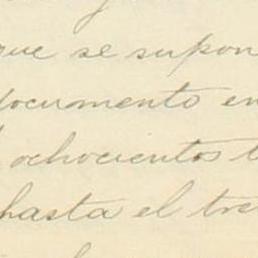 que se supon
documento en
ochocientos t
hasta el tre